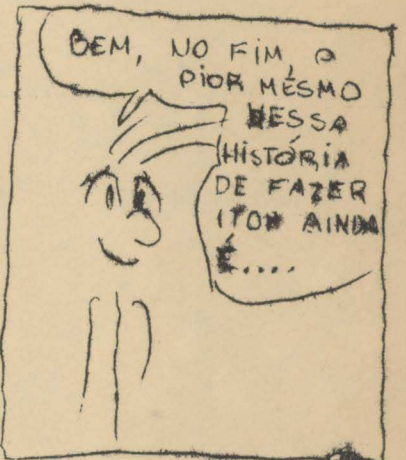 BEM, NO FIM, O
PIOR MESMO
DESSA
HISTÓRIA
DE FAZER
AINDA
É....